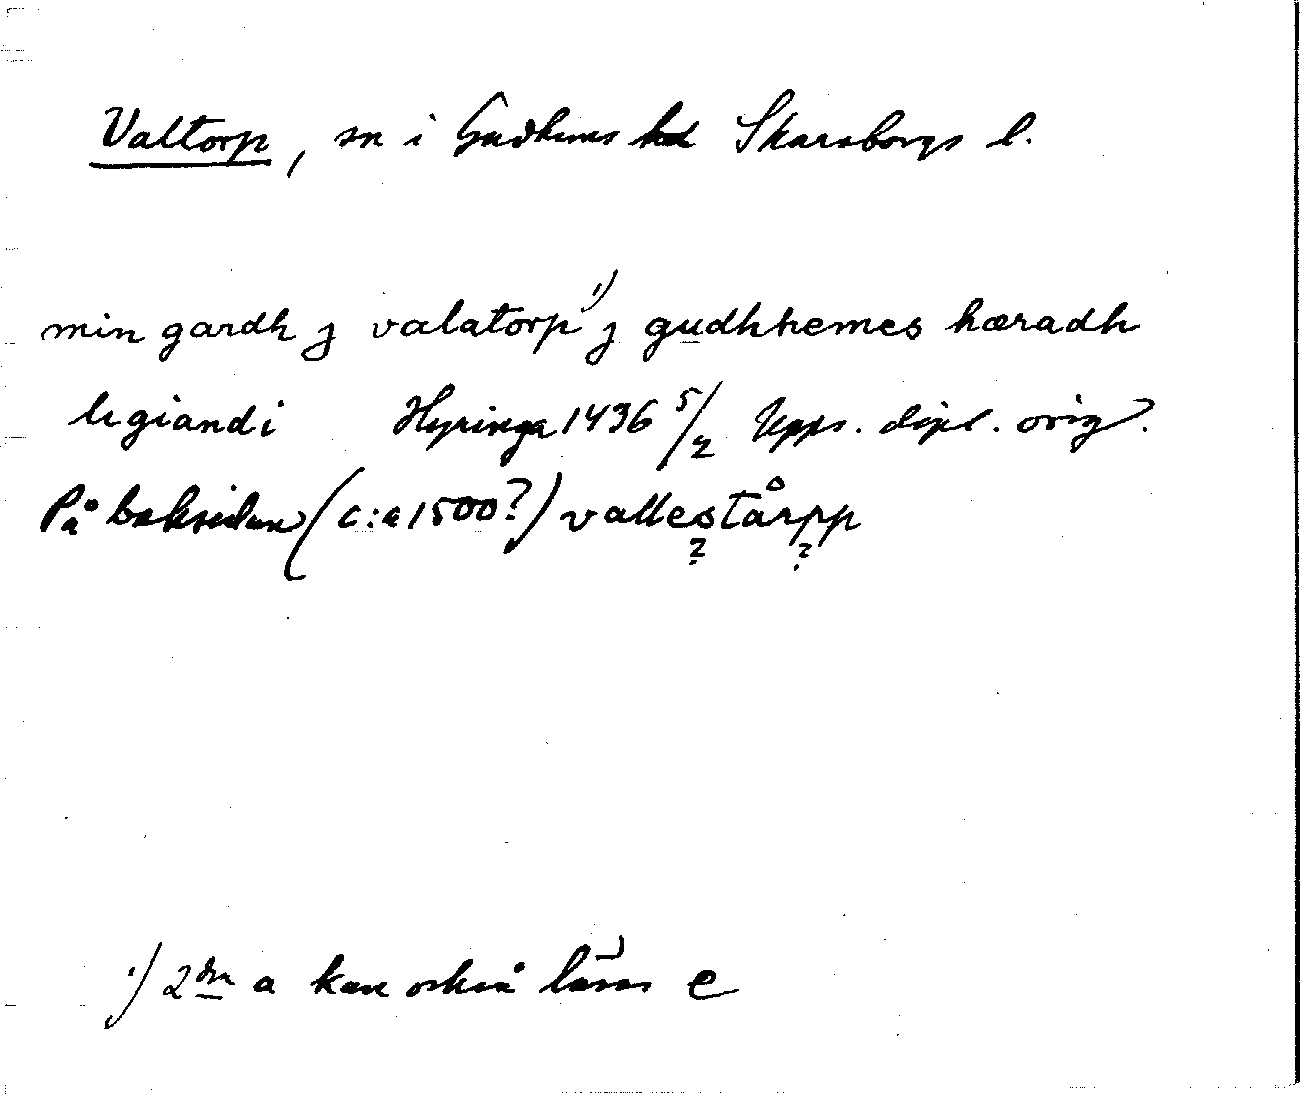 Valtorp, sn i Gudhems hd Skaraborgs l.
min gardh j valatorp 1) j gudhhemes hæradh
ligiandi Hyringa 1436 5/2 Upps. dipl. orig.
På baksidan (c:a 1500?) vallestårpp
? ?
1) 2dra a kan också läsas e